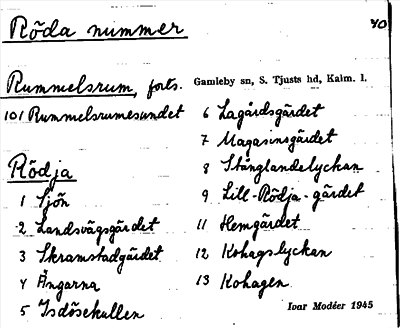 Röda nummer
40
Rummelsrum, forts.
Gamleby sn, S. Tjusts hd, Kalm. l.
101 Rummelsrumesundet
Rödja
1 Sjön
2 Landsvägsgärdet
3 Skramstadgärdet
4 Ängarna
5 Isdösekullen
6 Lagårdsgärdet
7 Magasinsgärdet
8 Stänglandelyckan
9 Lill-Rödja-gärdet
11 Hemgärdet
12 Kohagslyckan
13 Kohagen
Ivar Modéer 1945